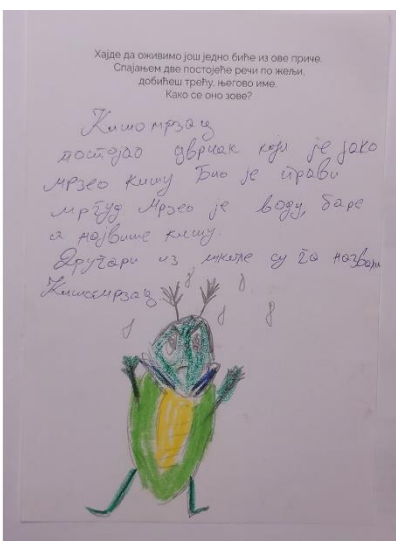 Хајде да оживимо још једно биће из ове приче.
Спајањем две постојеће речи по жељи,
добићеш трећу, његово име.
Како се оно зове?
Кишомрзац
постојао цврчак који је јако
мрзео кишу Био је прави
мргуд Мрзео је воду, баре
а највише кишу.
Другари из школе су га назвали
Кишомрзац